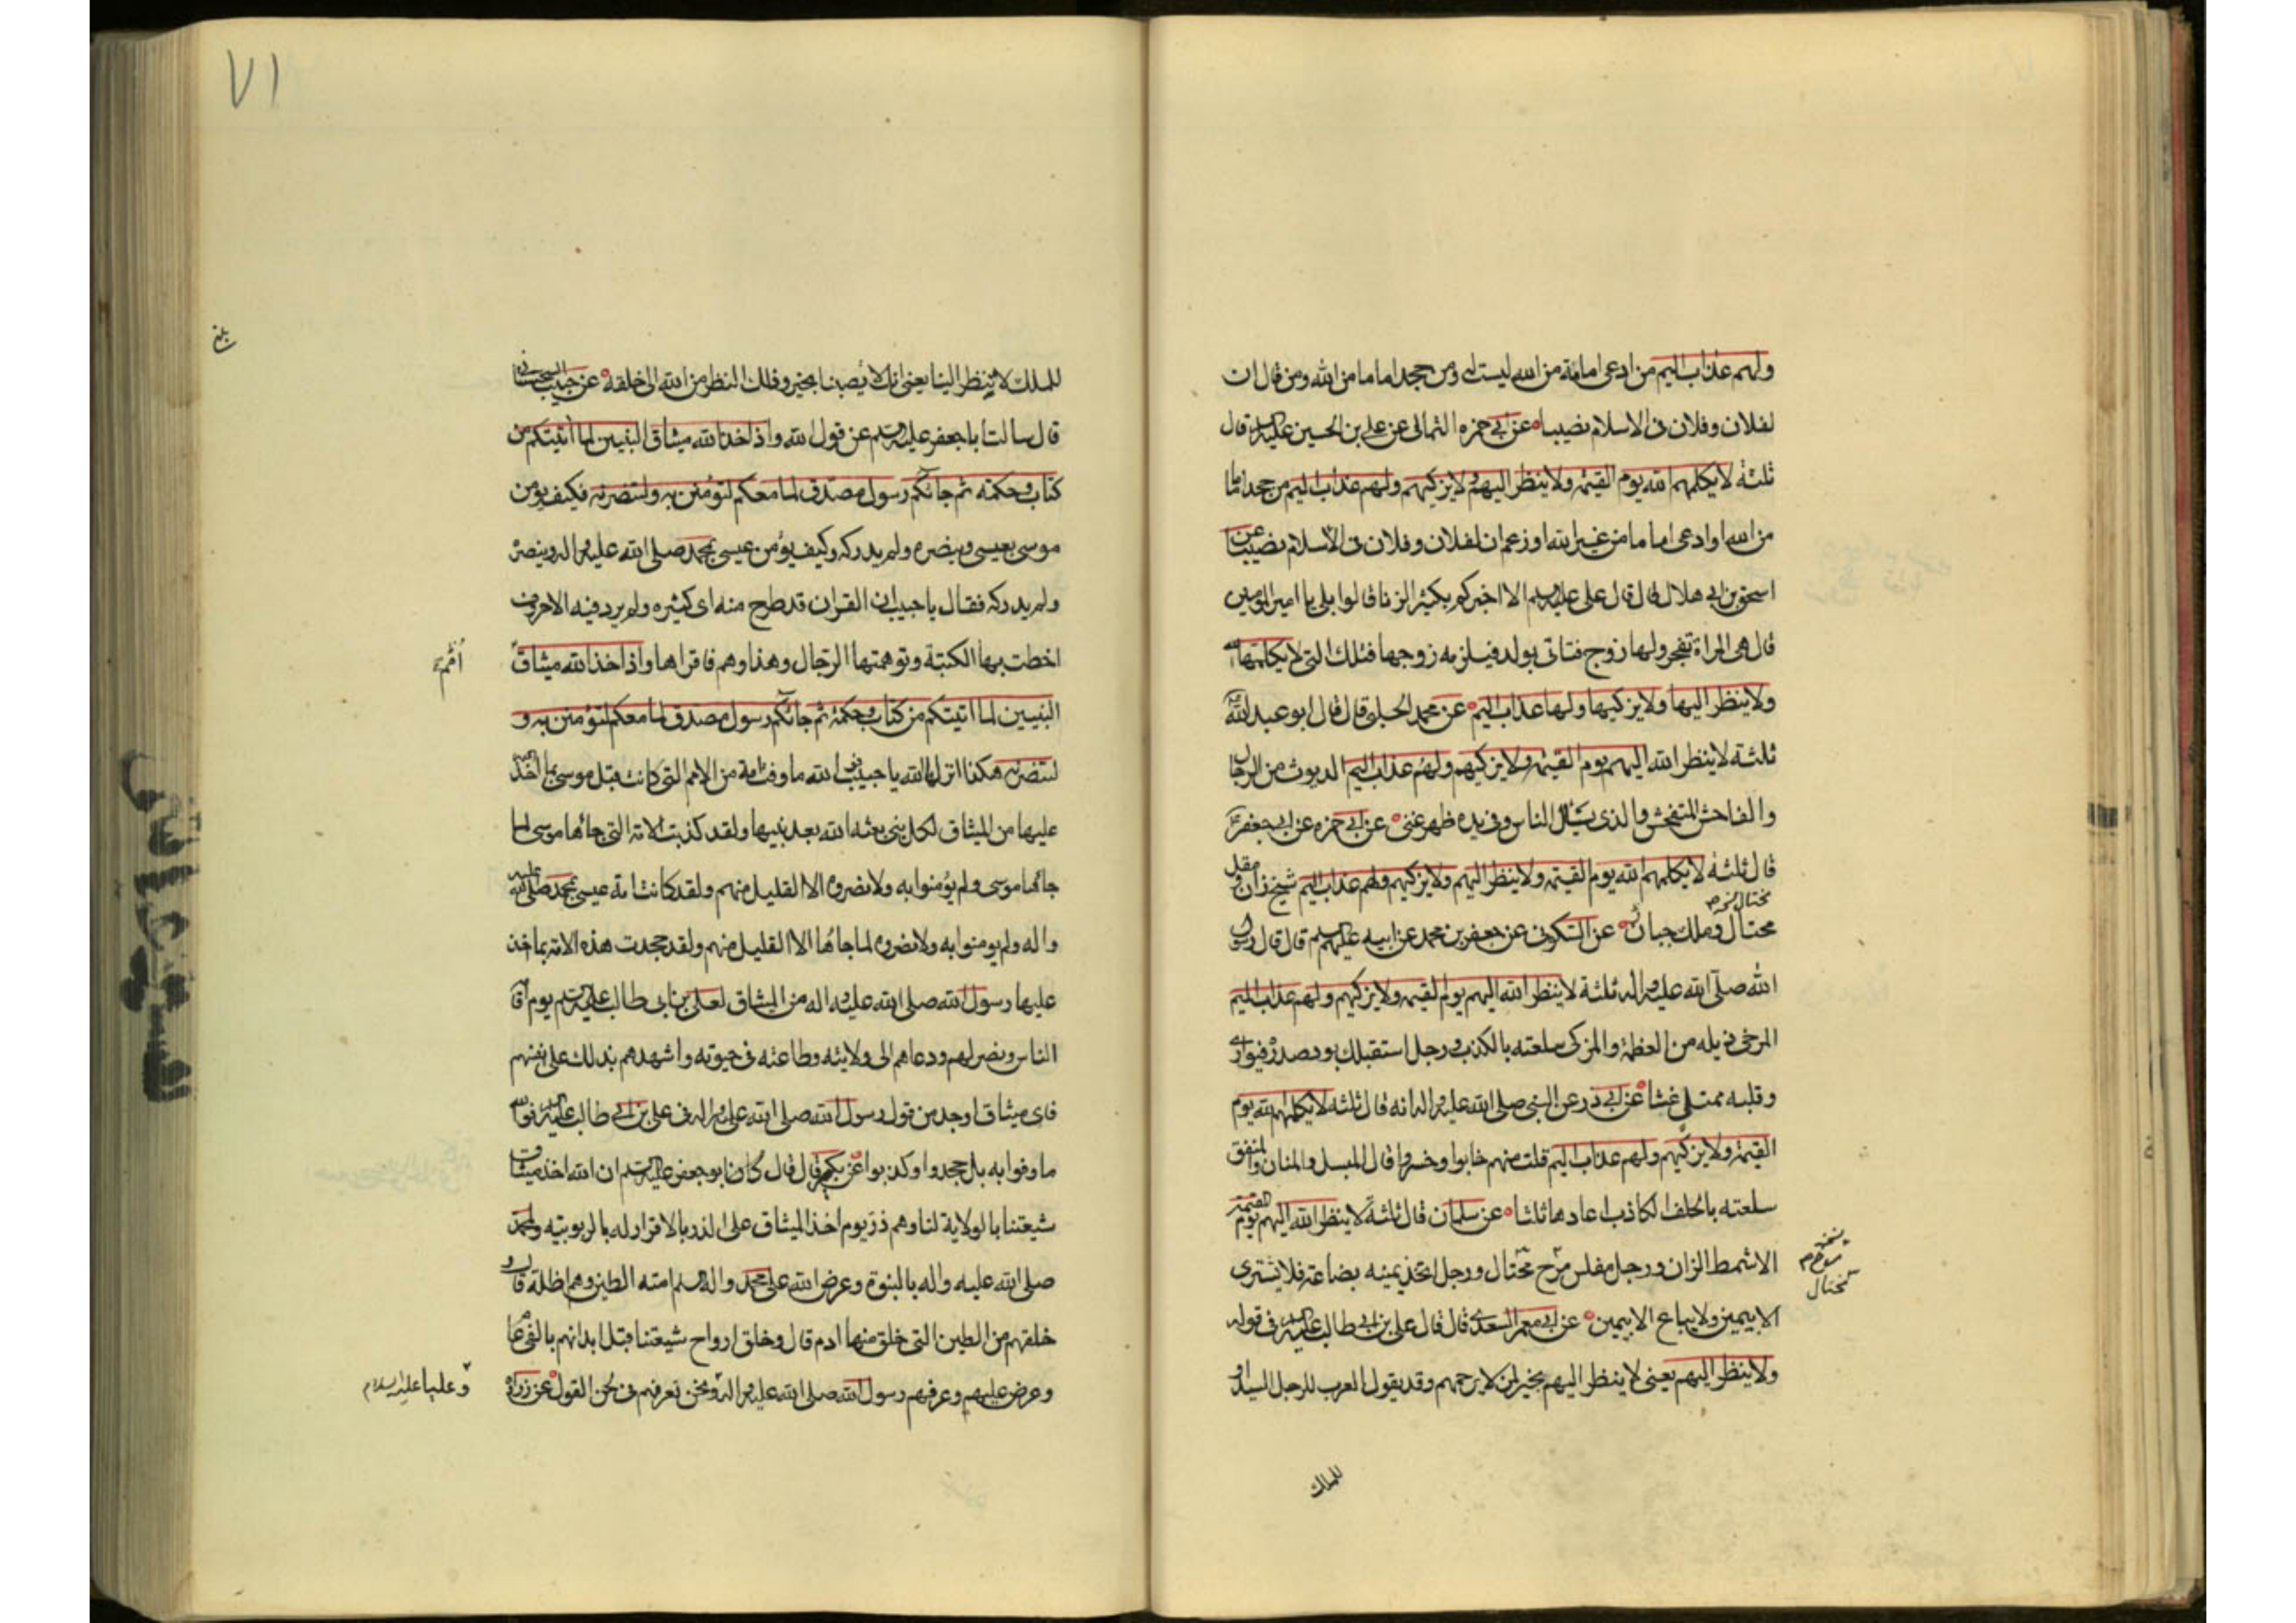 ولهم عذاب اليم من ادعى امامة من الله ليست له ومن جحد اماما من الله ومن قال ان
لفلان وفلان فى الاسلام نصيبا عن ابى حمزه الثمالى عن على بن الحسين عليه السلام قال
ثلثة لا يكلمهم الله يوم القيمة ولا ينظر اليهم ولا يزكيهم ولهم عذاب اليم من جحد اماما
من الله او ادعى اماما من غير الله او زعم ان لفلان وفلان فى الاسلام نصيبا عن
اسحق بن ابى هلال قال قال على عليه السلم الا اخبركم بكبير الزنا قالوا بلى يا امير المومنين
قال هى المراة تفجر ولها زوج فتاتى بولد فيلزمه زوجها فتلك التى لا يكلمها الله
ولا ينظر اليها ولا يزكيها ولها عذاب اليم عن محمد الحلبى قال قال ابو عبد الله
ثلثة لا ينظر الله اليهم يوم القيمة ولا يزكيهم ولهم عذاب اليم الديوث من الرجال
والفاحش المتفحش والذى يسئل الناس وفى يده ظهر غنى عن ابى حمزه عن ابى جعفر ع
قال ثلثة لا يكلمهم الله يوم القيمة ولا ينظر اليهم ولا يزكيهم ولهم عذاب اليم شيخ زان ومقل
مختال
محتال وملك جبار عن السكونى عن جعفر بن محمد عن ابيه عليهم السلم قال قال رسول
الله صلى الله عليه واله ثلثة لا ينظر الله اليهم يوم القيمة ولا يزكيهم ولهم عذاب اليم
المرخى ذيله من العظمة والمزكى سلعته بالكذب ورجل استقبلك بود صدره فيوارى
وقلبه ممتلئ غشا عن ابى ذر عن النبى صلى الله عليه واله انه قال ثلثة لا يكلمهم الله يوم
القيمة ولا يزكيهم ولهم عذاب اليم قلت منهم خابوا وخسروا قال المسبل والمنان والمنفق
سلعته بالحلف الكاذب اعادها ثلثا عن سلمان قال ثلثة لا ينظر الله اليهم يوم القيمة
الاشمط الزان ورجل مفلس مرح مختال ورجل اتخذ يمينه بضاعة فلا يشترى
مختال
الا بيمين ولا يباع الا بيمين عن ابى معمر السعدى قال قال على بن ابى طالب عليه السلم فى قوله
ولا ينظر اليهم يعنى لا ينظر اليهم بخير لمن لا يرحمهم وقد يقول العرب للرجل السيد او
للملك
٧١
بلغ
للملك لا تنظر الينا يعنى انك لا تصيبنا بخير وذلك النظر من الله الى خلقه عن حبيب السجستانى
قال سالت ابا جعفر عليه السلم عن قول الله واذ اخذ الله ميثاق النبيين لما اتيتكم من
كتاب وحكمة ثم جائكم رسول مصدق لما معكم لتؤمنن به ولتنصرنه فكيف يؤمن
موسى بعيسى وينصره ولم يدركه وكيف يؤمن عيسى بمحمد صلى الله عليه واله وينصره
ولم يدركه فقال يا حبيب ان القران قد طرح منه اى كثيره ولم يرد فيه الا حروف
اخطت بها الكتبة وتوهمتها الرجال وهذا وهم فاقراها واذ اخذ الله ميثاق
امم
النبيين لما اتيتكم من كتاب وحكمة ثم جائكم رسول مصدق لما معكم لتؤمنن به و
لتنصرنه هكذا انزلها الله يا حبيب فو الله ما وفت امة من الامم التى كانت قبل موسى بما اخذ الله
عليها من الميثاق لكل نبى بعثه الله بعد نبيها ولقد كذبت الامة التى جائها موسى لما
جائها موسى ولم يؤمنوا به ولا نصروه الا القليل منهم ولقد كانت امة عيسى بمحمد صلى الله عليه
واله ولم يومنوا به ولا نصروه لما جاءها الا القليل منهم ولقد جحدت هذه الامة بما اخذ
عليها رسول الله صلى الله عليه واله من الميثاق لعلى بن ابى طالب عليه السلم يوم اقامه
الناس ونصبه لهم ودعاهم الى ولايته وطاعته فى حيوته واشهدهم بذلك على انفسهم
فاى ميثاق اوجد من قول رسول الله صلى الله عليه واله فى على بن ابى طالب عليه السلم فوالله
ما وفوا به بل جحدوا وكذبوا عن بكير قال قال كان ابو جعفر عليه السلم ان الله اخذ ميثاق
شيعتنا بالولاية لنا وهم ذر يوم اخذ الميثاق على الذر بالاقرار له بالربوبيته ولمحمد
صلى الله عليه واله بالنبوة وعرض الله على محمد واله السلم امته الطين وهم اظلة قال و
خلقهم من الطين التى خلق منها ادم قال وخلق ارواح شيعتنا قبل ابدانهم بالفى عام
وعرض عليهم وعرفهم رسول الله صلى الله عليه واله ونحن نعرفهم فى لحن القول عن زرارة
وعليا عليه السلام